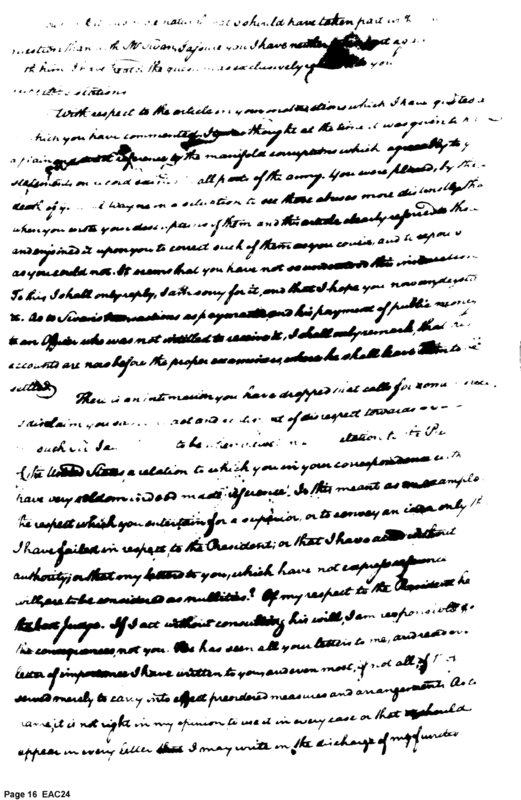 natural should have taken part with
question than with Mr Swan I assure you I have neither
him I have the question as exclusively you
With respect to the article in your instructions which I have quoted &
which you have commented. It was thought at the time it was given to
a plain and direct reference to the manifold corruptions which agreeably to y
statements on record existed all parts of the army. You were placed, by the
death of Wayne in a situation to see those abuses more distinctly tha
when you wrote your descriptions of them and this article clearly referred to the
and enjoined it upon you to correct such of them as you could, and to report
as you could not. It seems that you have not so understood this instruction
To this I shall only reply, I am sorry for it, and that I hope you now understand
it. As to Swan's transactions as paymaster, and his payment of public money
to an Officer who was not entitled to receive it, I shall only remark, that his
accounts are now before the proper examiners, where he shall leave them to be
settled
There is an intimation you have dropped that calls for some
disclaim you act and of disrespect towards
such to be relation to the
of the United States, a relation to which you in your correspondence with
have very seldom indeed made reference. Is this meant as an example
the respect which you entertain for a superior, or to convey an idea only th
I have failed in respect to the President; or that I have acted without
authority; or that my letters to you, which have not express reference
will, are to be considered as nullities? Of my respect to the President he
the best Judge. If I act without consulting his will, I am responsible to
the consequences, not you. He has seen all your letters to me, and read
letter of importance I have written to you, and even most, if not all, of
served merely to carry into effect preordered measures and arrangements. As to
name, it is not right in my opinion to use it in every case or that it should
appear in every letter that I may write in the discharge of my
Page 16 EAC24